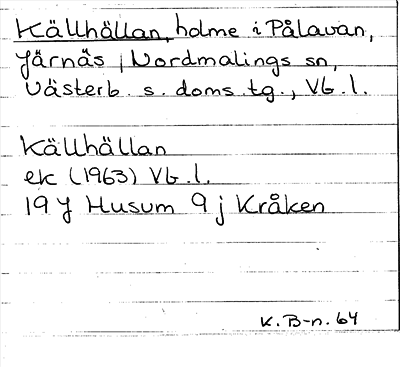 Källhällan, holme i Pålavan,
Järnäs, Nordmalings sn,
Västerb. s. doms.tg., Vb.l.
Källhällan
ek (1963) Vb.l.
19 J Husum 9 j Kråken
K.B-n. 64